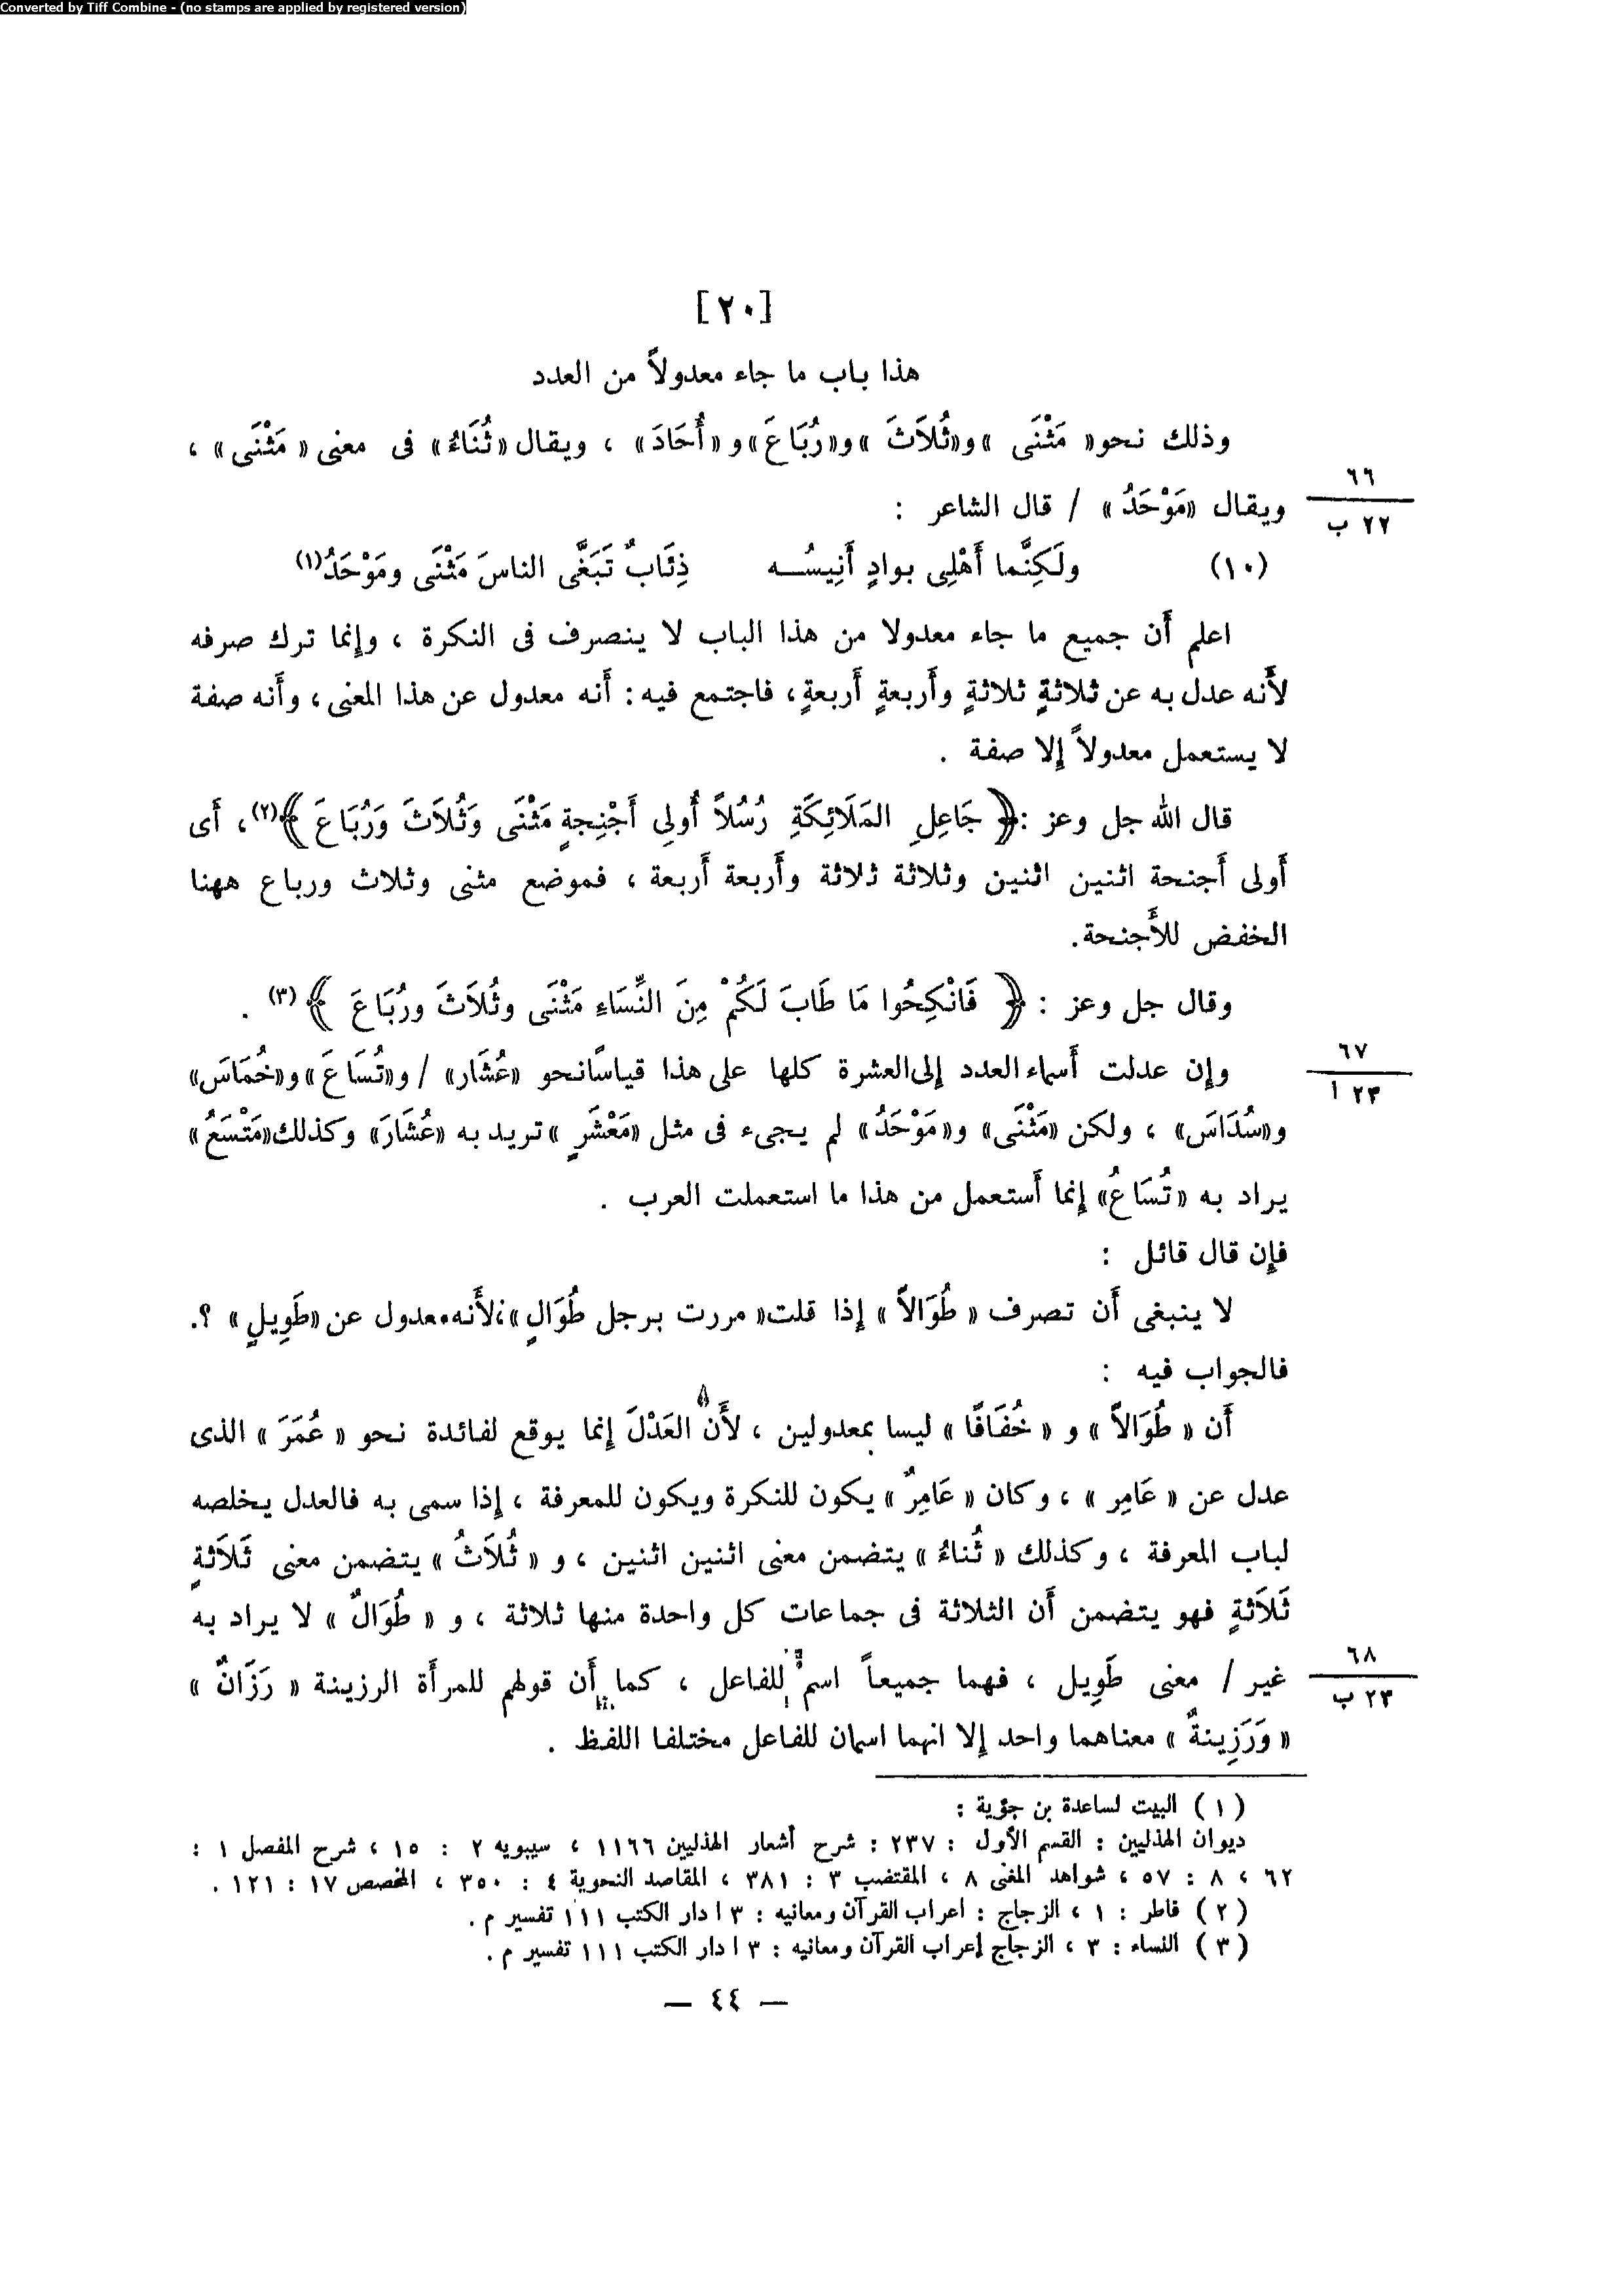 Converted by Tiff Combine - (no stamps are applied by registered version)
[٢٠]
هذا باب ما جاء معدولاً من العدد
وذلك نحو« مَثْنَى »و«ثُلاَثَ »و«رُبَاعَ»و«أُحَادَ» ، ويقال«ثُنَاءُ» فى معنى« مَثْنَى» ،
٦٦
ويقال «مَوْحَدُ» / قال الشاعر :
٢٢ ب
(١٠) ولَكِنَّما أَهْلِى بوادٍ أَنِيسُــه ذِئَابٌ تَبَغَّى الناسَ مَثْنَى ومَوْحَدُ(١)
اعلم أَن جميع ما جاء معدولا من هذا الباب لا ينصرف فى النكرة ، وإنما ترك صرفه
لأَنه عدل به عن ثلاثةٍ ثلاثةٍ وأَربعةٍ أَربعةٍ، فاجتمع فيه: أَنه معدول عن هذا المعنى، وأَنه صفة
لا يستعمل معدولاً إلا صفة .
قال الله جل وعز :﴿ جَاعِلِ المَلَائِكَةِ رُسُلاً أُولِى أَجْنِحةٍ مَثْنَى وَثُلاَثَ وَرُبَاعَ ﴾(٢)، أَى
أَولى أَجنحة اثنين اثنين وثلاثة ثلاثة وأَربعة أَربعة ، فموضع مثنى وثلاث ورباع ههنا
الخفض للأَجنحة.
وقال جل وعز : ﴿ فَانْكِحُوا مَا طَابَ لَكُمْ مِنَ النِّسَاءِ مَثْنَى وثُلاَثَ ورُبَاعَ ﴾(٣) .
٦٧
وإن عدلت أَسماء العدد إلى العشرة كلها على هذا قياسًا نحو «عُشَار» / و«تُسَاعَ»و«خُمَاسَ»
٢٣ ا
و«سُدَاسَ» ، ولكن «مَثْنَى» و«مَوْحَدُ» لم يجىء فى مثل «مَعْشَرٍ »تريد به «عُشَارَ» وكذلك«مَتْسَعُ»
يراد به «تُسَاعُ» إنما أَستعمل من هذا ما استعملت العرب .
فإن قال قائل :
لا ينبغى أَن تصرف « طُوَالاً » إذا قلت« مررت برجل طُوَالٍ»؛لأَنه معدول عن«طَوِيلٍ» ؟.
فالجواب فيه :
أَن « طُوَالاً » و « خُفَافًا » ليسا بمعدولين ، لأَن العَدْلَ إنما يوقع لفائدة نحو « عُمَرَ » الذى
عدل عن « عَامِر » ، وكان « عَامِرٌ » يكون للنكرة ويكون للمعرفة ، إذا سمى به فالعدل يخلصه
لباب المعرفة ، وكذلك « ثُناءُ » يتضمن معنى اثنين اثنين ، و « ثُلاَثُ » يتضمن معنى ثَلاَثةٍ
ثَلاَثةٍ فهو يتضمن أَن الثلاثة فى جماعات كل واحدة منها ثلاثة ، و « طُوَالٌ » لا يراد به
٦٨
غير / معنى طَوِيل ، فهما جميعاً اسم للفاعل ، كما أَن قولهم للمرأَة الرزينة « رَزَانٌ »
٢٣ ب
« وَرَزِينةٌ » معناهما واحد إلا انهما اسمان للفاعل مختلفا اللفظ .
(١) البيت لساعدة بن جؤية :
ديوان الهذليين : القسم الأول : ٢٣٧ : شرح أشعار الهذليين ١١٦٦ ، سيبويه ٢ : ١٥ ، شرح المفصل ١ :
٦٢ ، ٨ : ٥٧ ، شواهد المغنى ٨ ، المقتضب ٣ : ٣٨١ ، المقاصد النحوية ٤ : ٣٥٠ ، المخصص ١٧ : ١٢١ .
(٢) فاطر : ١ ، الزجاج : اعراب القرآن ومعانيه : ٣ ا دار الكتب ١١١ تفسير م .
(٣) النساء : ٣ ، الزجاج إعراب القرآن ومعانيه : ٣ ا دار الكتب ١١١ تفسير م .
— ٤٤ —